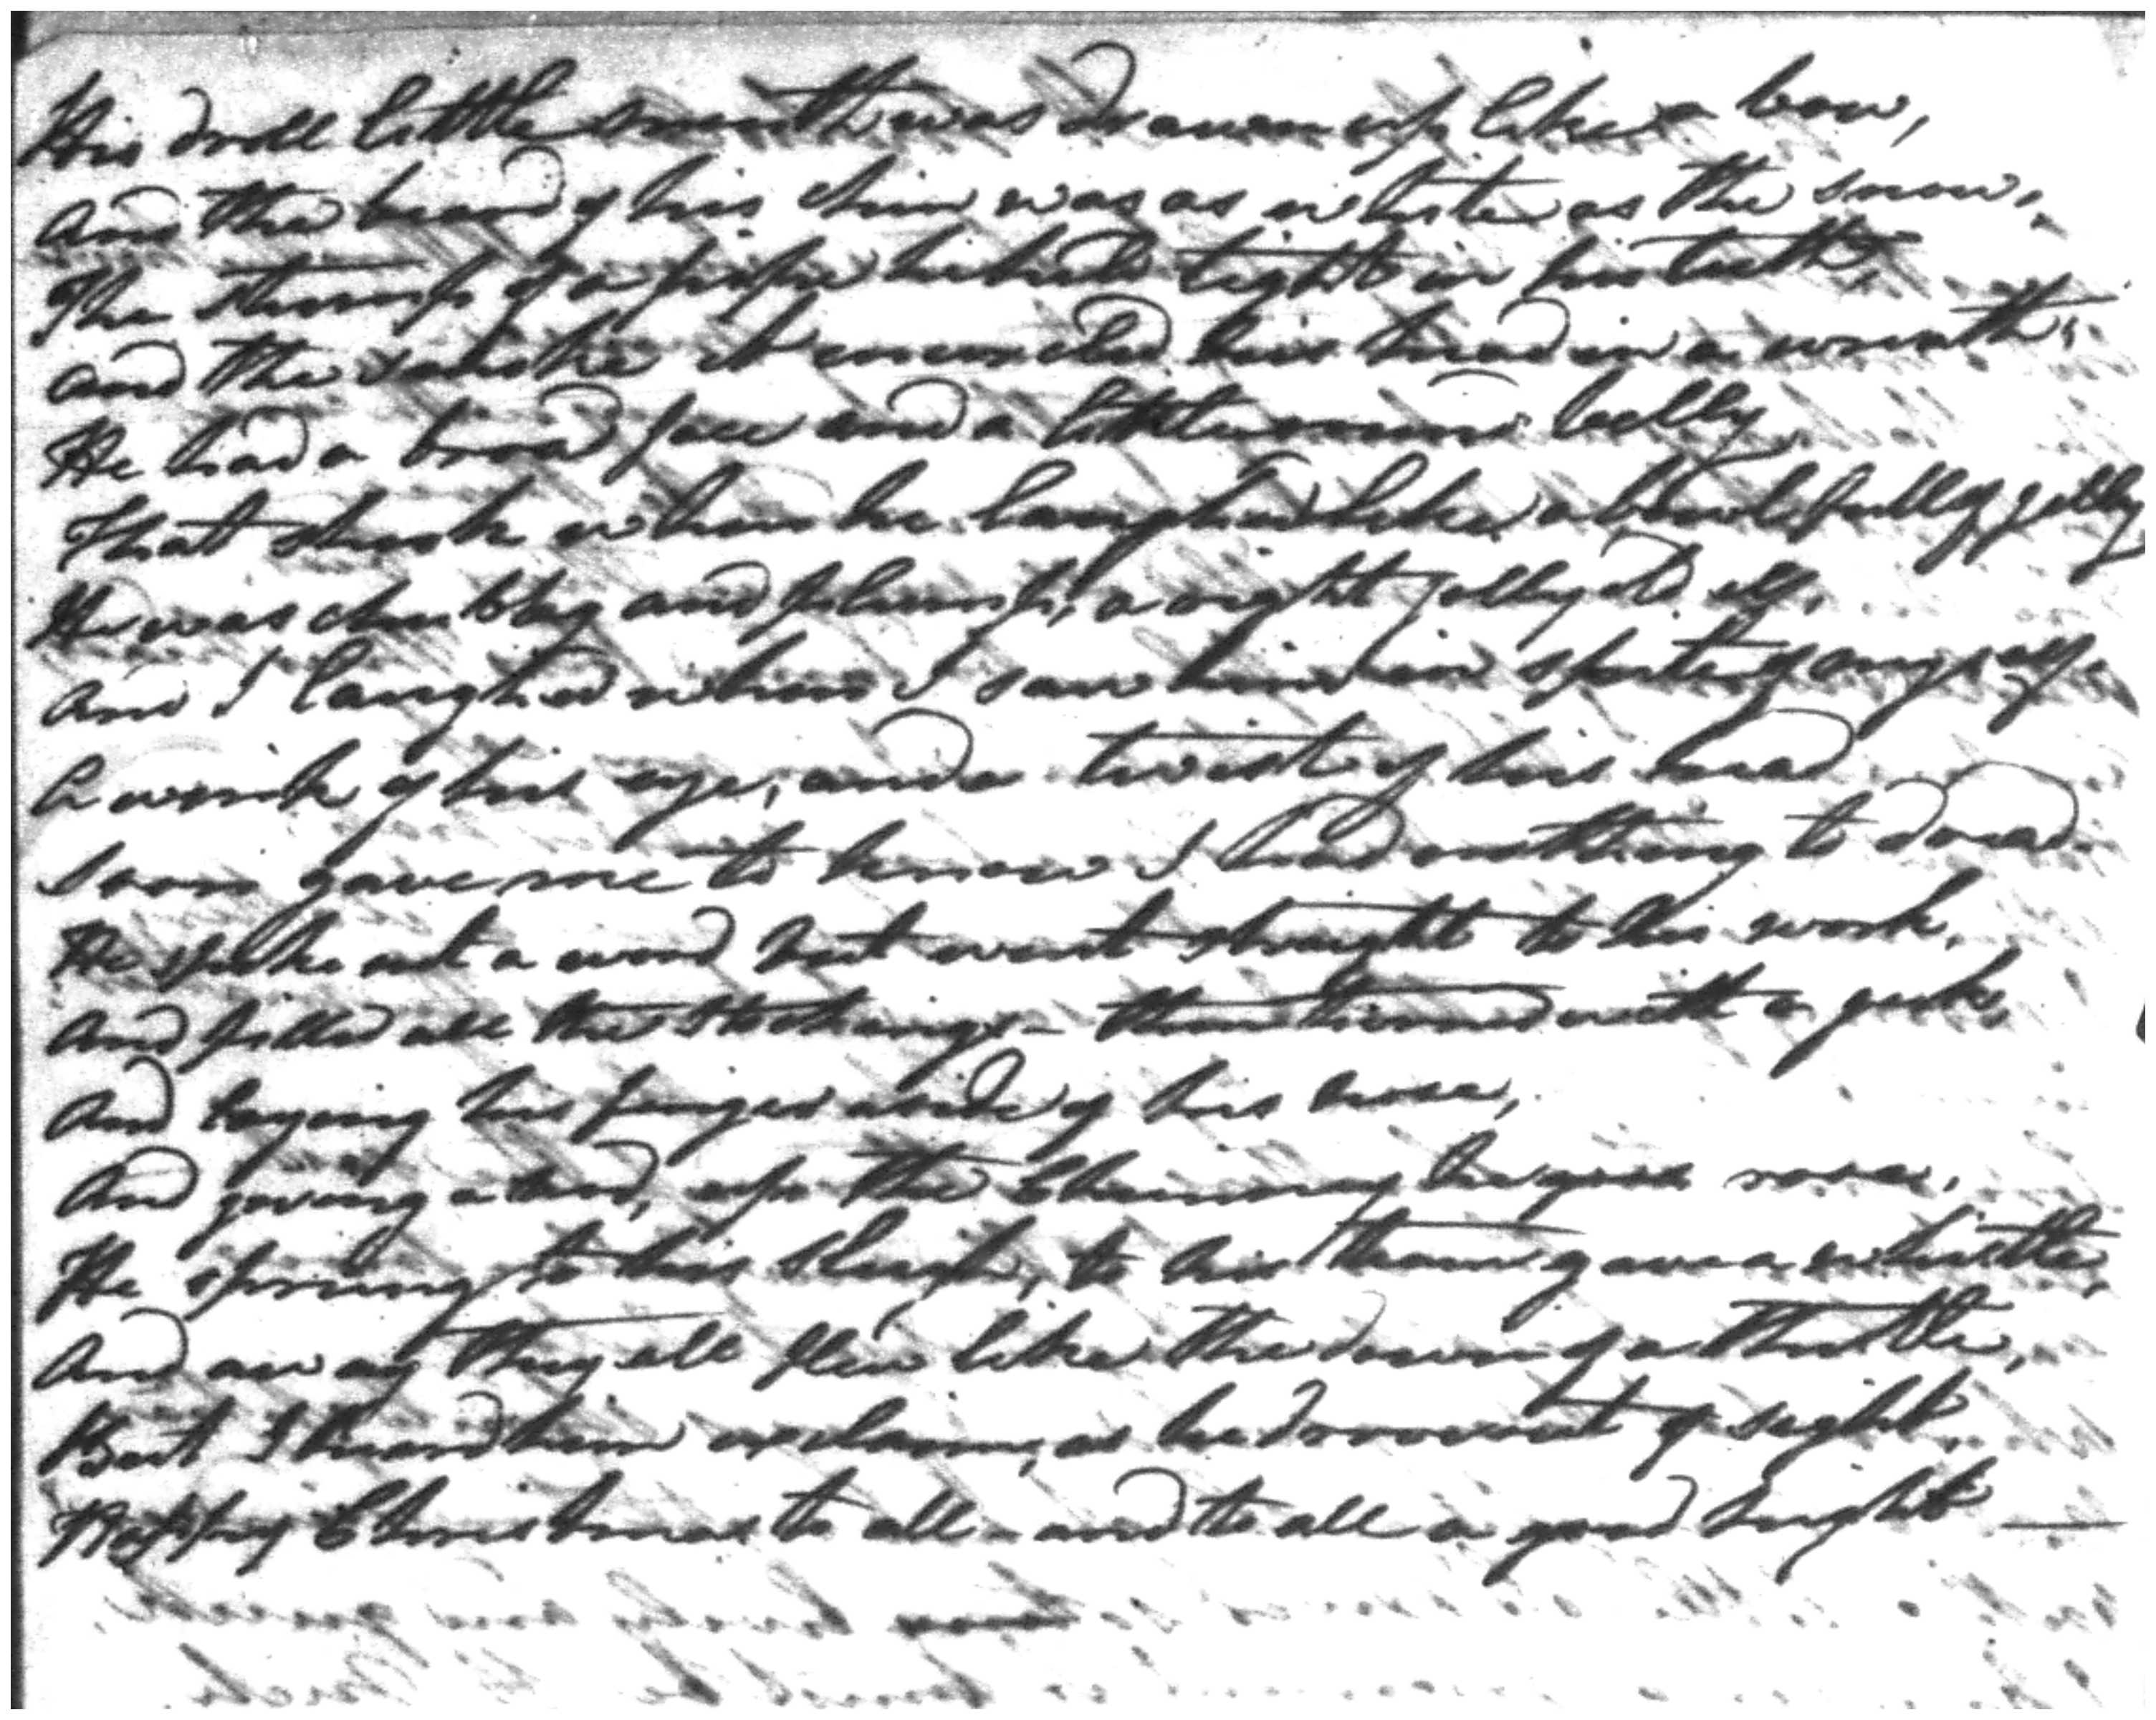 His droll little mouth was drawn up like a bow,
And the beard of his chin was as white as the snow,
The stump of a pipe he held tight in his teeth,
And the smoke it encircled his head in a wreath.
He had a broad face and a little round belly
That shook when he laughed like a bowl full of jelly
He was chubby and plump, a right jolly old elf,
And I laughed when I saw him in spite of myself.
A wink of his eye, and a twist of his head
Soon gave me to know I had nothing to dread.
He spoke not a word but went straight to his work,
And filled all the stockings - then turned with a jerk,
And laying his finger aside of his nose,
And giving a nod, up the Chimney he rose,
He sprung to his sleigh, to his team gave a whistle,
And away they all flew like the down of a thistle,
But I heard him exclaim, as he drove out of sight,
Happy Christmas to all - and to all a good night —